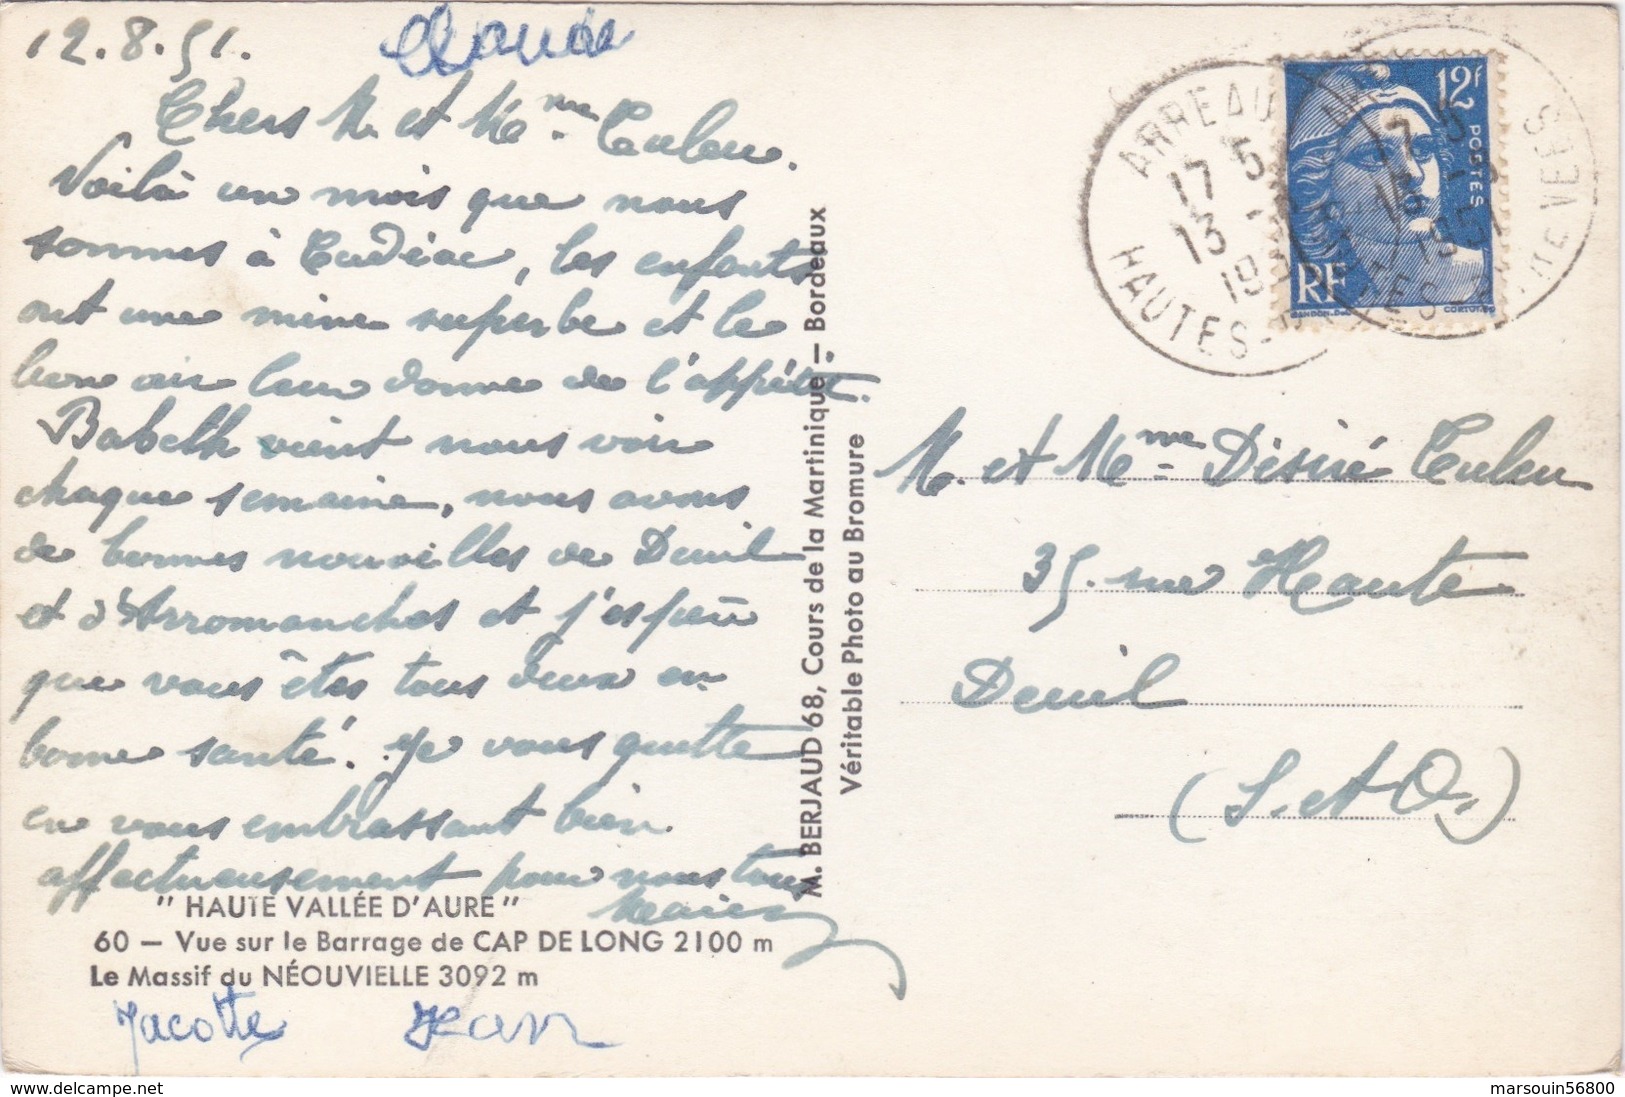 12.8.51.
Claude
Chers M. et Mme Culeu.
Voilà un mois que nous
sommes à Cadéac, les enfants
ont une mine superbe et le
bon air leur donne de l'appétit.
Babeth vient nous voir
chaque semaine, nous avons
de bonnes nouvelles de Deuil
et d'Arromanches et j'espère
que vous êtes tous deux en
bonne santé. Je vous quitte
en vous embrassant bien
affectueusement pour nous tous
"HAUTE VALLÉE D'AURE"
60 – Vue sur le Barrage de CAP DE LONG 2100 m
Le Massif du NÉOUVIELLE 3092 m
Jacotte Jean
M. BERJAUD 68, Cours de la Martinique – Bordeaux
Véritable Photo au Bromure
ARREAU
17 5
13
19
HAUTES-
12F
POSTES
RF
M. et Mme Désiré Culeu
35. rue Haute
Deuil
(S. et O.)
www.delcampe.net
marsouin56800